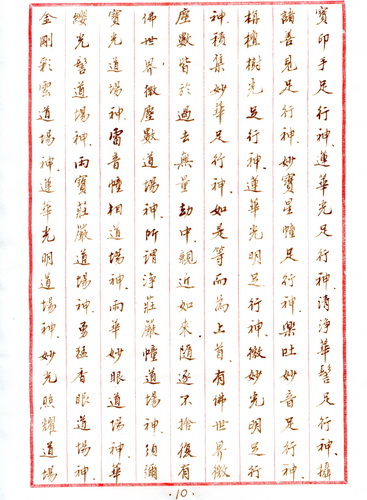 寶印手足行神.蓮華光足行神.清淨華髻足行神.攝
諸善見足行神.妙寶星幢足行神.樂吐妙音足行神.
栴檀樹光足行神.蓮華光明足行神.微妙光明足行
神.積集妙華足行神.如是等而為上首.有佛世界微
塵數.皆於過去無量劫中.親近如來.隨逐不捨.復有
佛世界.微塵數道場神.所謂淨莊嚴幢道場神.須彌
寶光道場神.雷音幢相道場神.雨華妙眼道場神.華
纓光髻道場神.雨寶莊嚴道場神.勇猛香眼道場神.
金剛彩雲道場神.蓮華光明道場神.妙光照耀道場
·10·